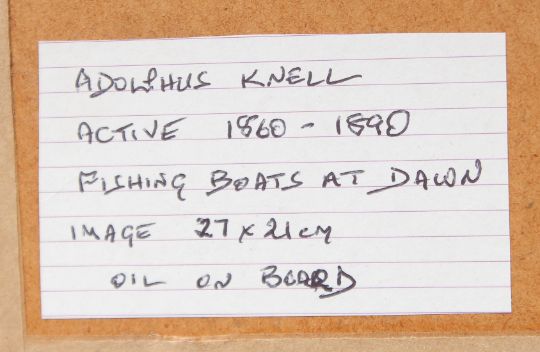 ADOLPHUS KNELL
ACTIVE 1860 - 1890
FISHING BOATS AT DAWN
IMAGE 27 x 21 CM
OIL ON BOARD